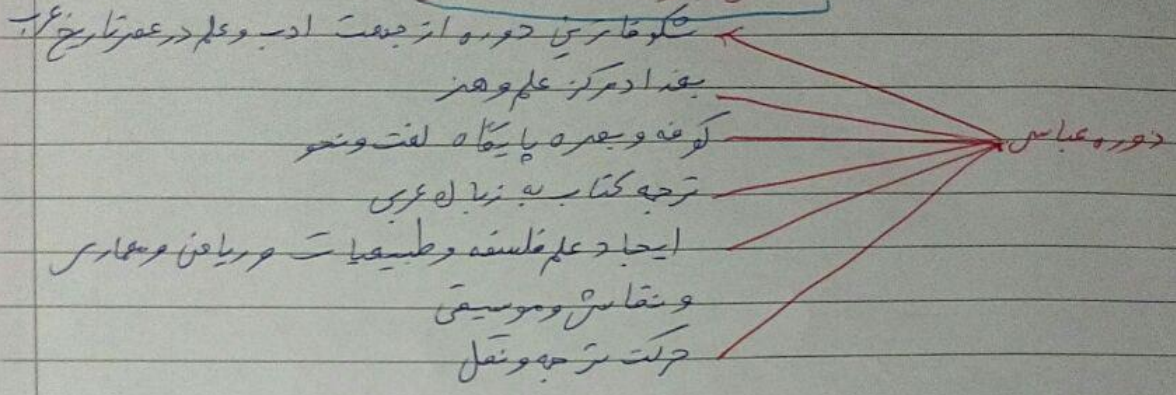 شکوفاترین دوره از جهت ادب و علم در عصر تاریخ عرب
بغداد مرکز علم و هنر
دوره عباسی
کوفه و بصره پایگاه لغت و نحو
ترجمه کتاب به زبان عربی
ایجاد علم فلسفه و طبیعیات و ریاضی و معماری
و نقاشی و موسیقی
حرکت ترجمه و نقل